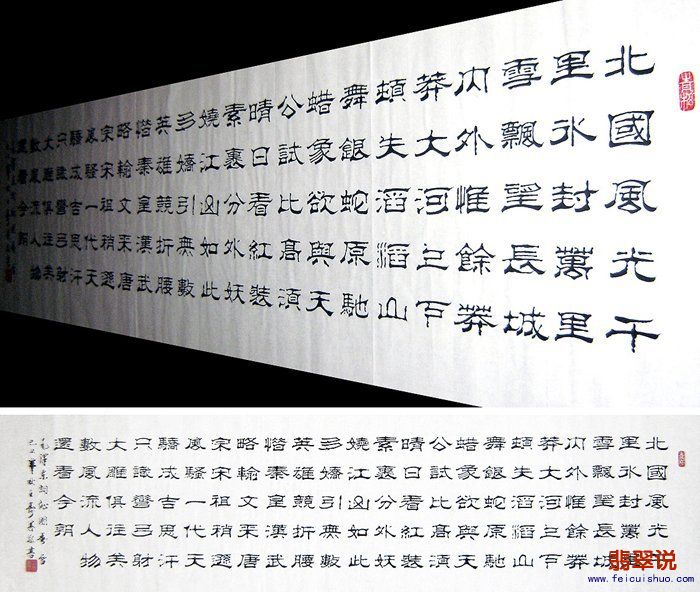 北國風光千
里冰封萬里
雪飄望長城
內外惟餘莽
莽大河上下
頓失滔滔山
舞銀蛇原馳
蜡象欲與天
公試比高須
晴日看紅裝
素裹分外妖
嬈江山如此
多嬌引無數
英雄競折腰
惜秦皇漢武
略輸文采唐
宗宋祖稍遜
風騷一代天
驕成吉思汗
只識彎弓射
大雕俱往矣
數風流人物
還看今朝
北國風光千
里冰封萬里
雪飄望長城
內外惟餘莽
莽大河上下
頓失滔滔山
舞銀蛇原馳
蜡象欲與天
公試比高須
晴日看紅裝
素裹分外妖
嬈江山如此
多嬌引無數
英雄競折腰
惜秦皇漢武
略輸文采唐
宗宋祖稍遜
風騷一代天
驕成吉思汗
只識彎弓射
大雕俱往矣
數風流人物
還看今朝
毛澤東詞沁園春雪
翡翠说
www.feicuishuo.com